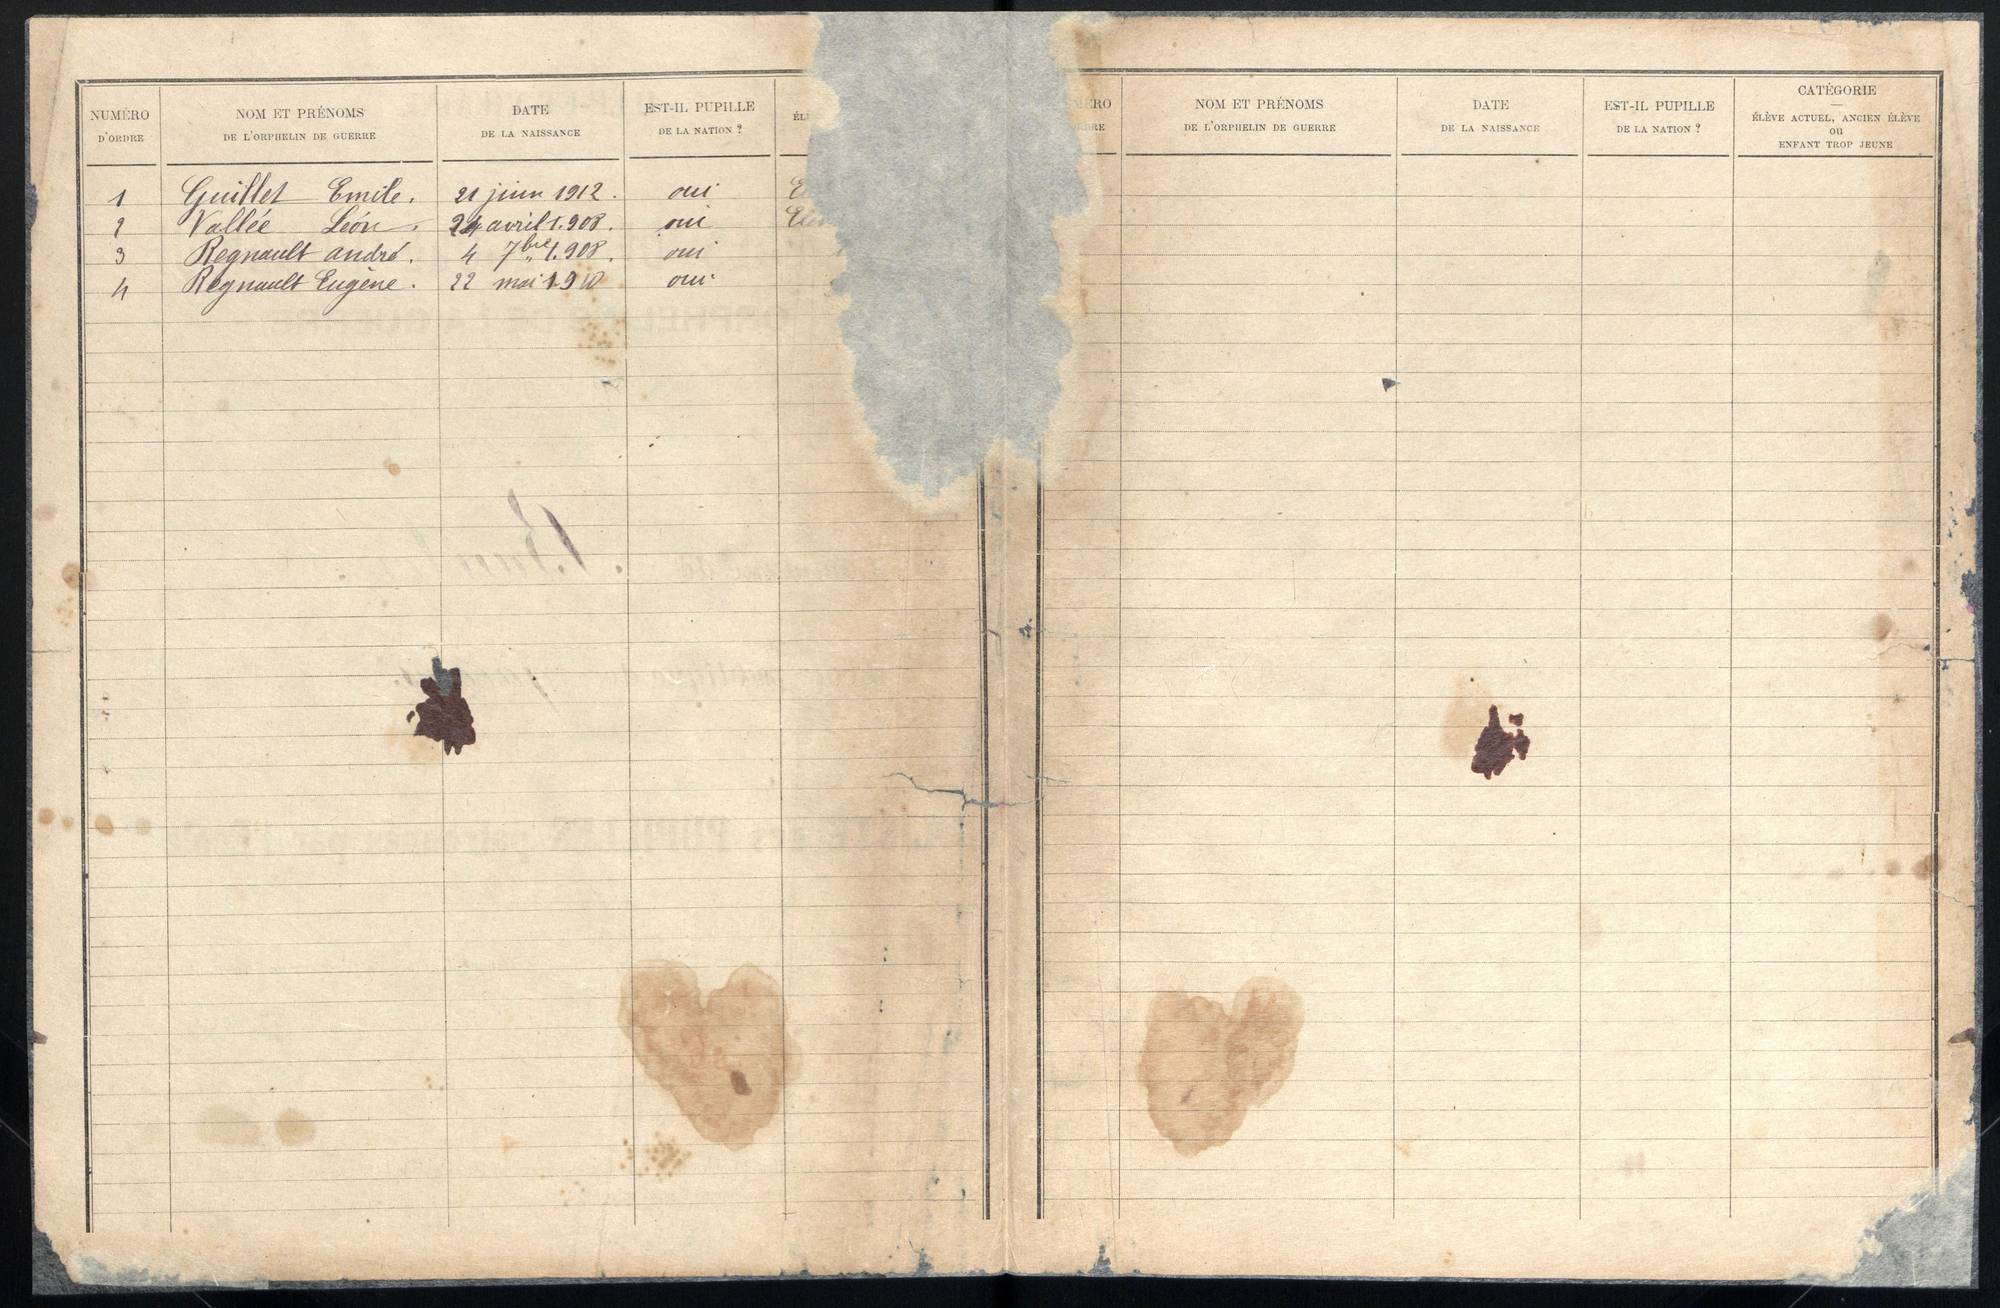 NUMÉRO D'ORDRE
NOM ET PRÉNOMS DE L'ORPHELIN DE GUERRE
DATE DE LA NAISSANCE
EST-IL PUPILLE DE LA NATION ?
1 Guillet Emile. 21 juin 1912. oui
2 Vallée Léon. 24 avril 1.908. oui
3 Regnault andré. 4 7bre 1.908. oui
4 Regnault Eugène. 22 mai 1910 oui
NOM ET PRÉNOMS DE L'ORPHELIN DE GUERRE
DATE DE LA NAISSANCE
EST-IL PUPILLE DE LA NATION ?
CATÉGORIE
—
ÉLÈVE ACTUEL, ANCIEN ÉLÈVE
ou
ENFANT TROP JEUNE